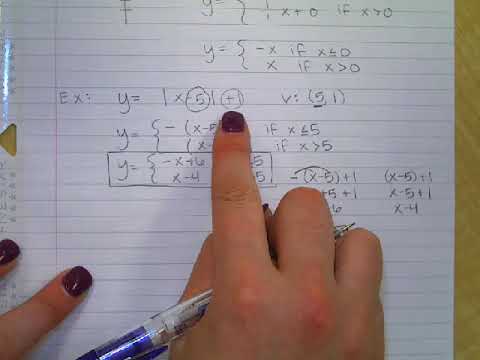 y = { 1/1 x+0 if x>0
y = { -x if x≤0
x if x>0
Ex: y = |x-5|+1 v: (5,1)
y = { -(x-5 if x≤5
(x if x>5
y = { -x+6 5
x-4 5
-(x-5)+1 (x-5)+1
+5+1 x-5+1
6 x-4